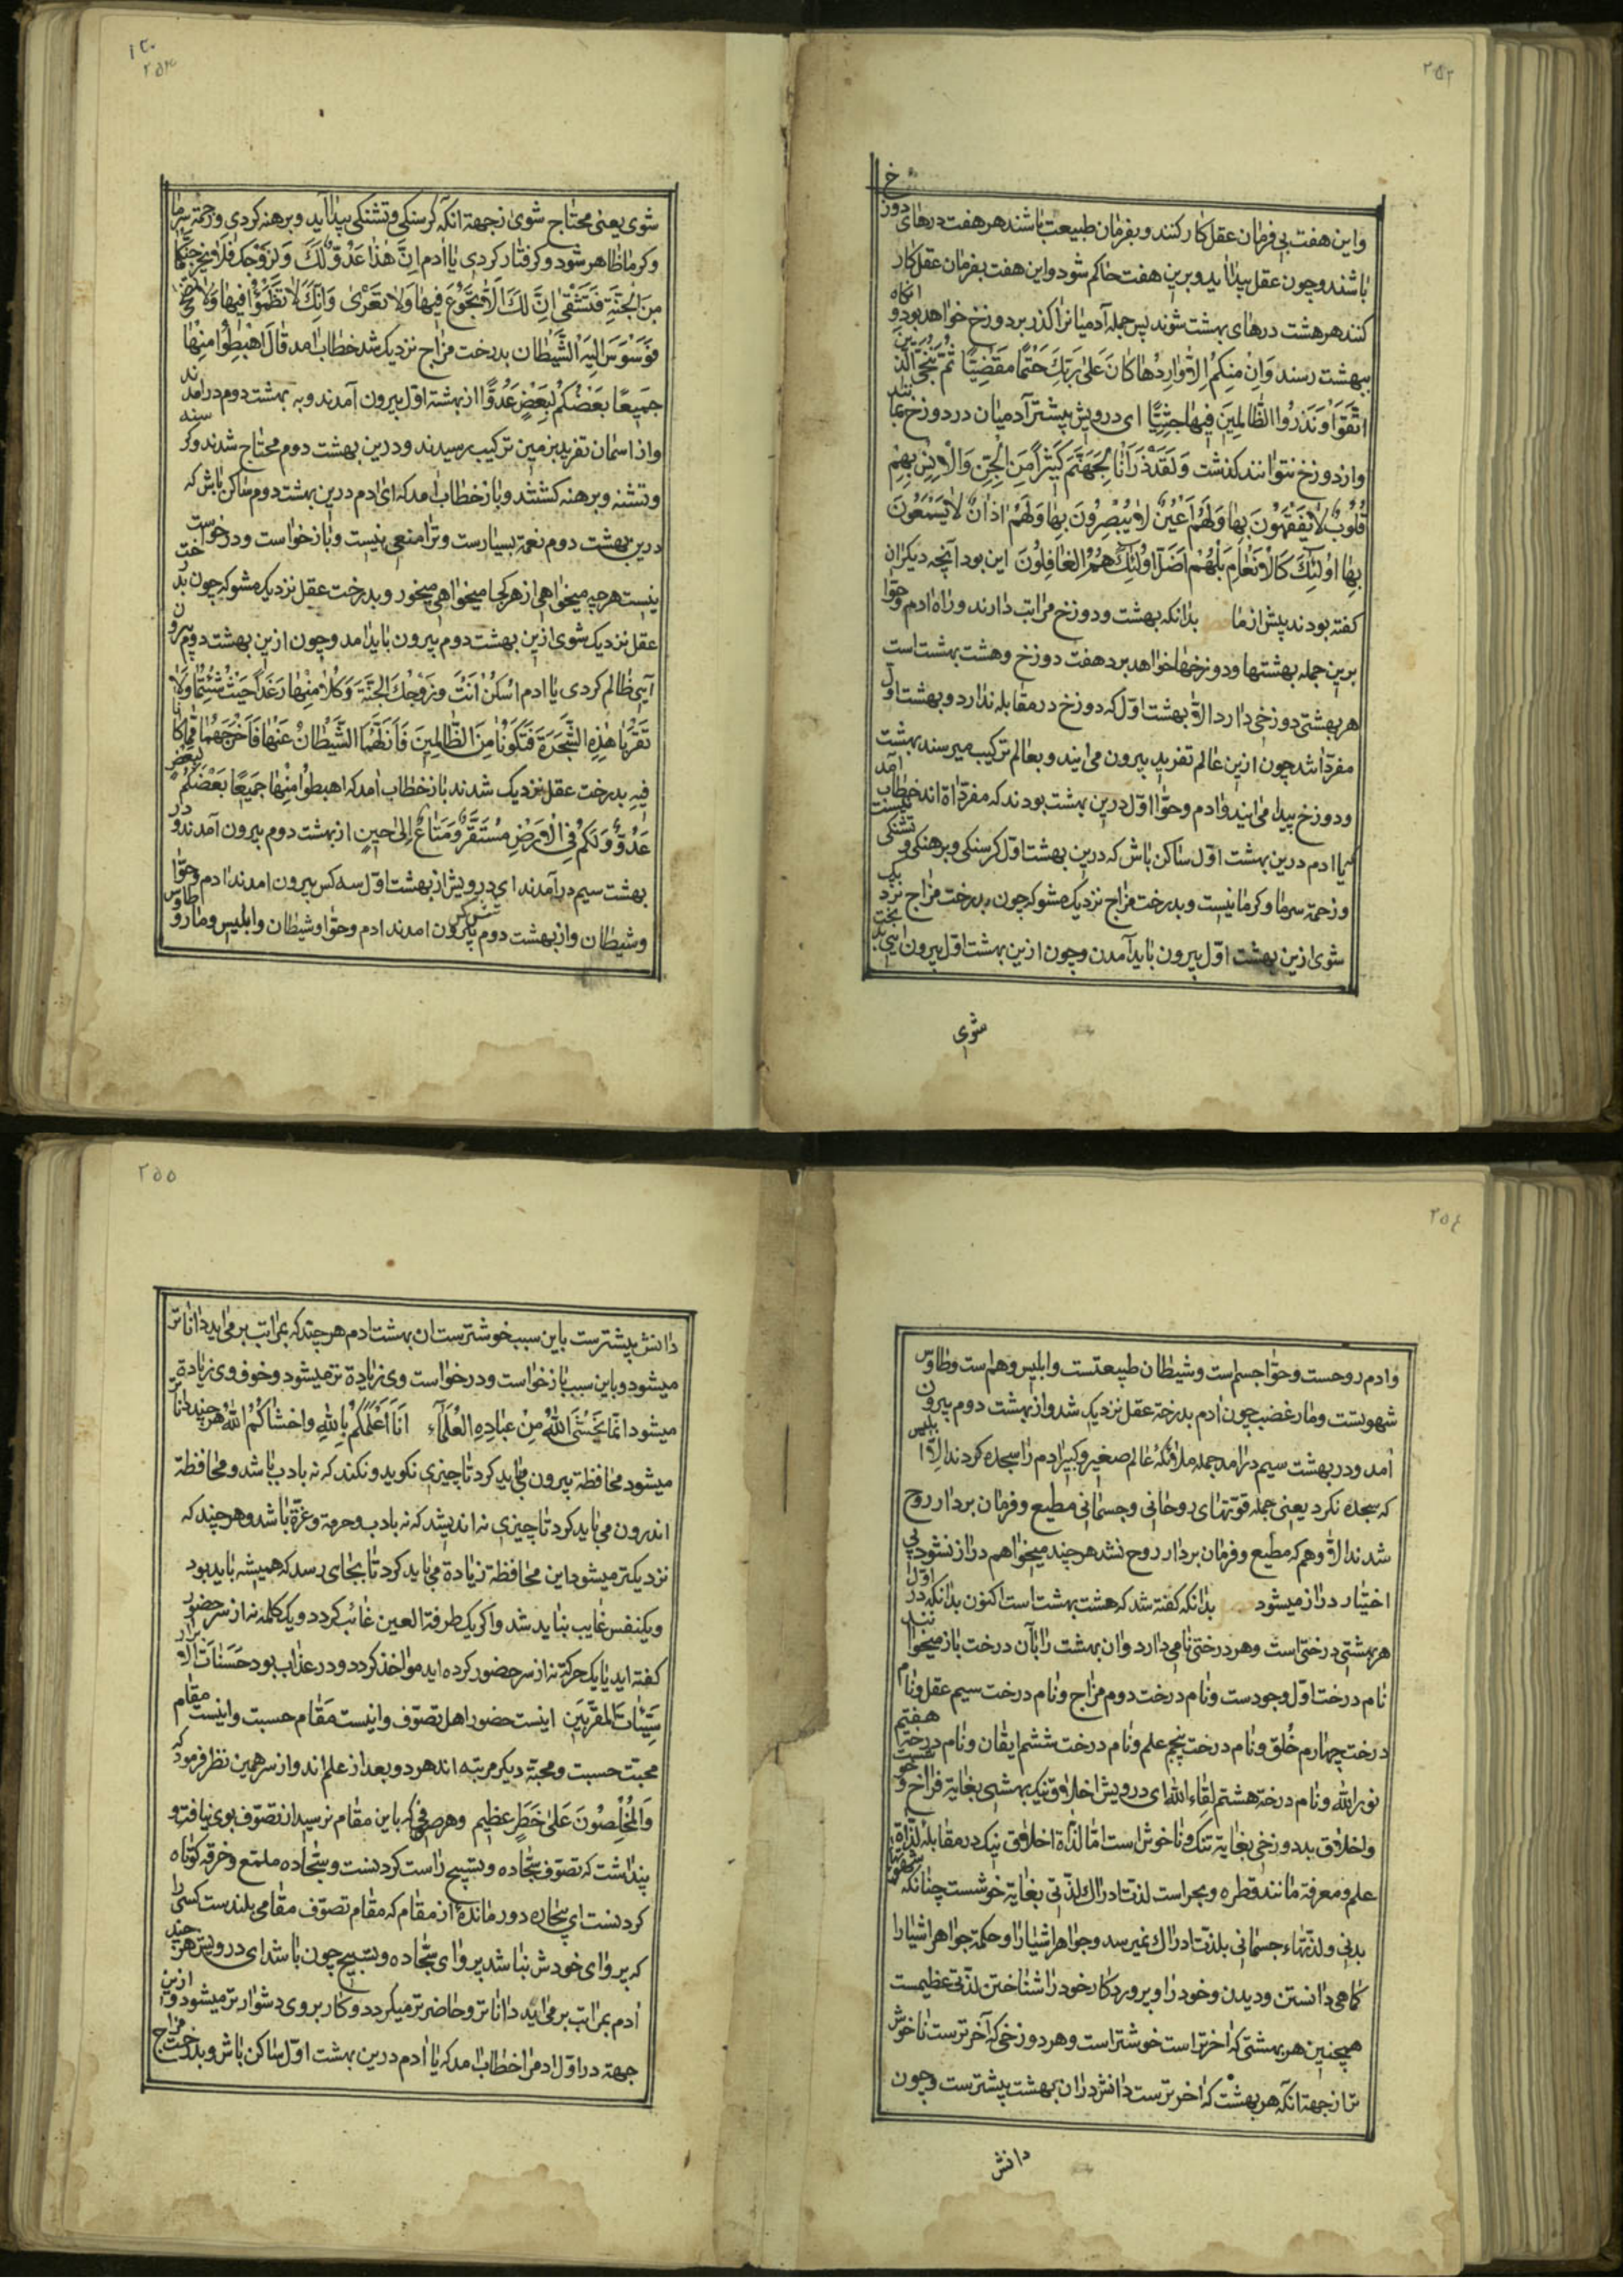 ٢٥٢
و این هفت بی فرمان عقل کار کنند و بفرمان طبیعت باشند هر هفت درهای دوزخ
باشند و چون عقل پیدا آید و برین هفت حاکم شود و این هفت بفرمان عقل کار
کنند هر هشت درهای بهشت شوند پس جمله آدمیانرا کذر بر دوزخ خواهد بود و انکاه
ببهشت رسند وَاِنْ مِنْکُمْ اِلاّٰ وٰارِدُهٰا کٰانَ عَلیٰ رَبِّكَ حَتْمًا مَقْضِیًّا ثُمَّ نُنَجِّی الَّذینَ
اتَّقَوْا وَنَذَرُوا الظّٰالِمینَ فیهٰا جِثِیًّا ای درویش پیشتر آدمیان در دوزخ بمانند
و از دوزخ نتوانند کذشت وَلَقَدْ ذَرَأْنٰا لِجَهَنَّمَ کَثیرًا مِنَ الْجِنِّ وَالْاِنْسِ لَهُمْ
قُلُوبٌ لاٰ یَفْقَهُونَ بِهٰا وَلَهُمْ اَعْیُنٌ لاٰ یُبْصِرُونَ بِهٰا وَلَهُمْ اٰذٰانٌ لاٰ یَسْمَعُونَ
بِهٰا اُولٰئِكَ کَالْاَنْعٰامِ بَلْ هُمْ اَضَلُّ اُولٰئِكَ هُمُ الْغٰافِلُونَ این بود آنچه دیکران
کفته بودند پیش از ما بدانکه بهشت و دوزخ مراتب دارند و راه ادم و حوّا
برین جمله بهشتها و دوزخها خواهد بود هفت دوزخ و هشت بهشت است
هر بهشتی دوزخی دارد الاّ بهشت اوّل که دوزخ در مقابله ندارد و بهشت اوّل
مفرد باشد چون ازین عالم تفرید بیرون می ایند و بعالم ترکیب میرسند بهشت
و دوزخ پیدا می ایند و ادم و حوّا اوّل درین بهشت بودند که مفرداة اند خطاب آمد
کیا ادم درین بهشت اوّل ساکن باش که درین بهشت اوّل کرسنکی و برهنکی و تشنکی نیست
و زحمة سرما و کرما نیست و بدرخت مزاج نزدیک مشو که چون بدرخت مزاج نزدیک
شوی ازین بهشت اوّل بیرون باید آمدن و چون ازین بهشت اوّل بیرون ایی بدبخت
شوی
٢٥٣
شوی یعنی محتاج شوی زجهة انکه کرسنکی و تشنکی پیدا آید و برهنه کردی و زحمة سرما
و کرما ظاهر شود و کرفتار کردی یٰا اٰدم اِنَّ هٰذٰا عَدُوٌّ لَكَ وَلِزَوْجِكَ فَلاٰ یُخْرِجَنَّکُمٰا
مِنَ الْجَنَّةِ فَتَشْقیٰ اِنَّ لَكَ اَلاّٰ تَجُوعَ فیهٰا وَلاٰ تَعْریٰ وَاَنَّكَ لاٰ تَظْمَؤُا فیهٰا وَلاٰ تَضْحیٰ
فَوَسْوَسَ اِلَیْهِ الشَّیْطٰان بدرخت مزاج نزدیک شد خطاب امد قٰالَ اهْبِطُوا مِنْهٰا
جَمیعًا بَعْضُکُمْ لِبَعْضٍ عَدُوًّا از بهشتة اوّل بیرون آمدند و به بهشت دوم درامدند
و از اسمان تفرید بزمین ترکیب رسیدند و درین بهشت دوم محتاج شدند و کرسنه
و تشنه و برهنه کشتند و باز خطاب امد که ای ادم درین بهشت دوم ساکن باش که
درین بهشت دوم نعمة بسیارست و ترا منعی نیست و بازخواست و درخواست
نیست هر چه میخواهی از هر کجا میخواهی میخور و بدرخت عقل نزدیک مشو که چون بدرخت
عقل نزدیک شوی ازین بهشت دوم بیرون باید امد و چون ازین بهشت دوم بیرون
آیی ظالم کردی یٰا ادم اسْکُنْ اَنْتَ وَزَوْجُكَ الْجَنَّةَ وَکُلاٰ مِنْهٰا رَغَدًا حَیْثُ شِئْتُمٰا وَلاٰ
تَقْرَبٰا هٰذِهِ الشَّجَرَةَ فَتَکُونٰا مِنَ الظّٰالِمینَ فَاَزَلَّهُمَا الشَّیْطٰانُ عَنْهٰا فَاَخْرَجَهُمٰا مِمّٰا کٰانٰا
فیهِ بدرخت عقل نزدیک شدند باز خطاب امد که اهبطوا مِنْهٰا جَمیعًا بَعْضُکُمْ لِبَعْضٍ
عَدُوٌّ وَلَکُمْ فِی الْاَرْضِ مُسْتَقَرٌّ وَمَتٰاعٌ اِلیٰ حینٍ از بهشت دوم بیرون آمدند و در
بهشت سیم درآمدند ای درویش از بهشت اوّل سه کس بیرون امدند ادم و حوّا
و شیطان و از بهشت دوم شش کس بیرون امدند ادم و حوّا و شیطان و ابلیس و مار و طاوس
٢٥٤
و ادم روحست و حوّا جسم است و شیطان طبیعتست و ابلیس وهم است و طاوس
شهوتست و مار غضب چون ادم بدرخة عقل نزدیک شد و از بهشت دوم بیرون
امد و در بهشت سیم درامد جمله ملائکهٔ عالم صغیر و کبیر ادم را سجده کردند الاّ ابلیس
که سجده نکرد یعنی جمله قوّتهای روحانی و جسمانی مطیع و فرمان بردار روح
شدند الاّ وهم که مطیع و فرمان بردار روح نشد هر چند میخواهم دراز نشود بی
اختیار دراز میشود بدانکه کفته شد که هشت بهشت است اکنون بدانکه در اوّل
هر بهشتی درختی است و هر درختی نامی دارد و ان بهشت را بآن درخت باز میخوانند
نام درخت اوّل وجودست و نام درخت دوم مزاج و نام درخت سیم عقل و نام
درخت چهارم خُلق و نام درخت پنجم علم و نام درخت ششم ایقان و نام درخة هفتم
نور الله و نام درخة هشتم لِقاء الله ای درویش اخلاق نیک بهشتی بغایة فراخ و خوشست
و اخلاق بد دوزخی بغایة تنک و ناخوش است امّا لذّاة اخلاق نیک در مقابلهٔ لذّاة
علم و معرفة مانند قطره و بحر است لذت ادراك لذّتی بغایة خوشست چنانکه شهوتها
بدنی و لذتهاء جسمانی بلذت ادراك نمیرسد و جواهر اشیا را و حکمة جواهر اشیا را
کماهی دانستن و دیدن و خود را و پروردکار خود را شناختن لذّتی عظیمست
همچنین هر بهشتی که اخرتر است خوشتر است و هر دوزخی که آخرترست ناخوش
تر از جهة انکه هر بهشت که اخرترست دانش در ان بهشت پیشترست و چون
دانش
٢٥٥
دانش پیشترست باین سبب خوشترست ان بهشت ادم هر چند که بمراتب بر می اید داناتر
میشود و باین سبب بازخواست و درخواست وی زیادة تر میشود و خوف وی زیادة تر
میشود انّمٰا یَخْشَی اللّٰهَ مِنْ عِبٰادِهِ الْعُلَمٰآءُ اَنَا اَعْلَمُکُمْ بِاللّٰهِ وَاخشٰاکُمْ اللّٰهُ هر چند داناتر
میشود محٰافظة بیرون می باید کرد تا چیزی نکوید و نکند که نه بادب باشد و محافظة
اندرون می باید کرد تا چیزی نه اندیشد که نه بادب و حرمة و عزّة باشد و هر چند که
نزدیکتر میشود این محٰافظة زیادة می باید کرد تا بجای رسد که همیشه باید بود
و یکنفس غایب نباید شد و اکر یک طرفة العین غائب کردد و یک کلمه نه از سر حضور
کفته اید یا یک حرکة نه از سر حضور کرده اید مواخذ کردد و در عذاب بود حَسَنٰاتُ الْاَبْرٰار
سَیِّئٰاتُ الْمُقَرَّبینَ اینست حضور اهل تصوّف و اینست مَقٰام حسبت و اینست مقام
محبّت حسبت و محبّة دیکر مرتبه اند هر دو بعد از علم اند و از سر همین نظر فرمود که
وَالْمُخْلِصُونَ عَلیٰ خَطَرٍ عَظیم و هر صوفی که باین مقام نرسید از تصوّف بوی نیافت و
پنداشت که تصوّف سجّاده و تسبیح راست کردنست و سجّاده ملمّع و خرقه کوتاه
کردنست ای بیچاره دور ماندهٔ از مقام که مقام تصوّف مقامی بلندست کسی را
که پروای خودش نباشد پروای سجّاده و تسبیح چون باشد ای درویش هر چند
ادم بمراتب بر می اید داناتر و حاضرتر میکردد و کار بر وی دشوارتر میشود و ازین
جهة در اوّل ادم را خطاب امد که یا ادم درین بهشت اوّل ساکن باش و بدرخت مزاج